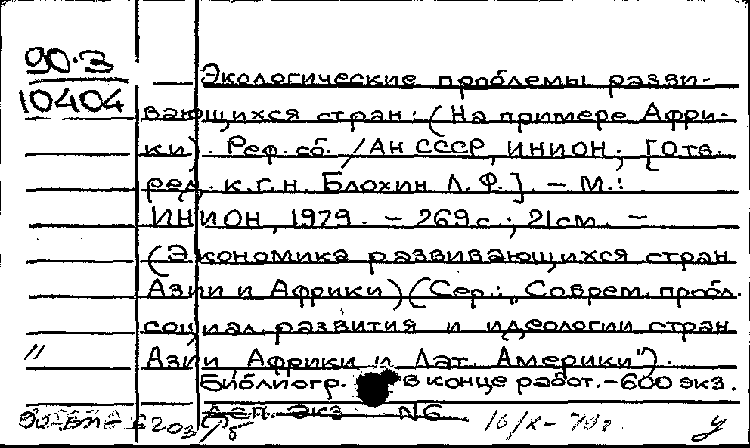 90-3
10404
Экологические проблемы разви-
вающихся стран: (На примере Афри-
ки). Реф. сб. / АН СССР, ИНИОН; [Отв.
ред. к.г.н. Блохин Л. Ф.]. – М.:
ИНИОН, 1979. – 269 с.; 21 см. –
(Экономика развивающихся стран
Азии и Африки) (Сер.: „Соврем. пробл.
социал. развития и идеологии стран
Азии, Африки и Лат. Америки").
Библиогр. в конце работ. – 600 экз.
Деп. экз. N6
16/X-79г.